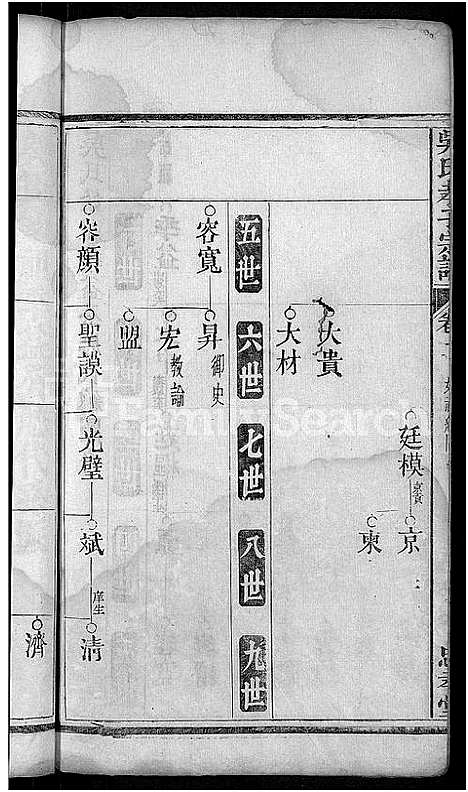 吳氏孝子宗譜
大貴
大材
廷模
京
東
五世 六世 七世 八世 九世
容寬
昇 御史
宏 教諭
盟
容顏
聖謨
光璧
斌 庠生
清
濟
FamilySearch